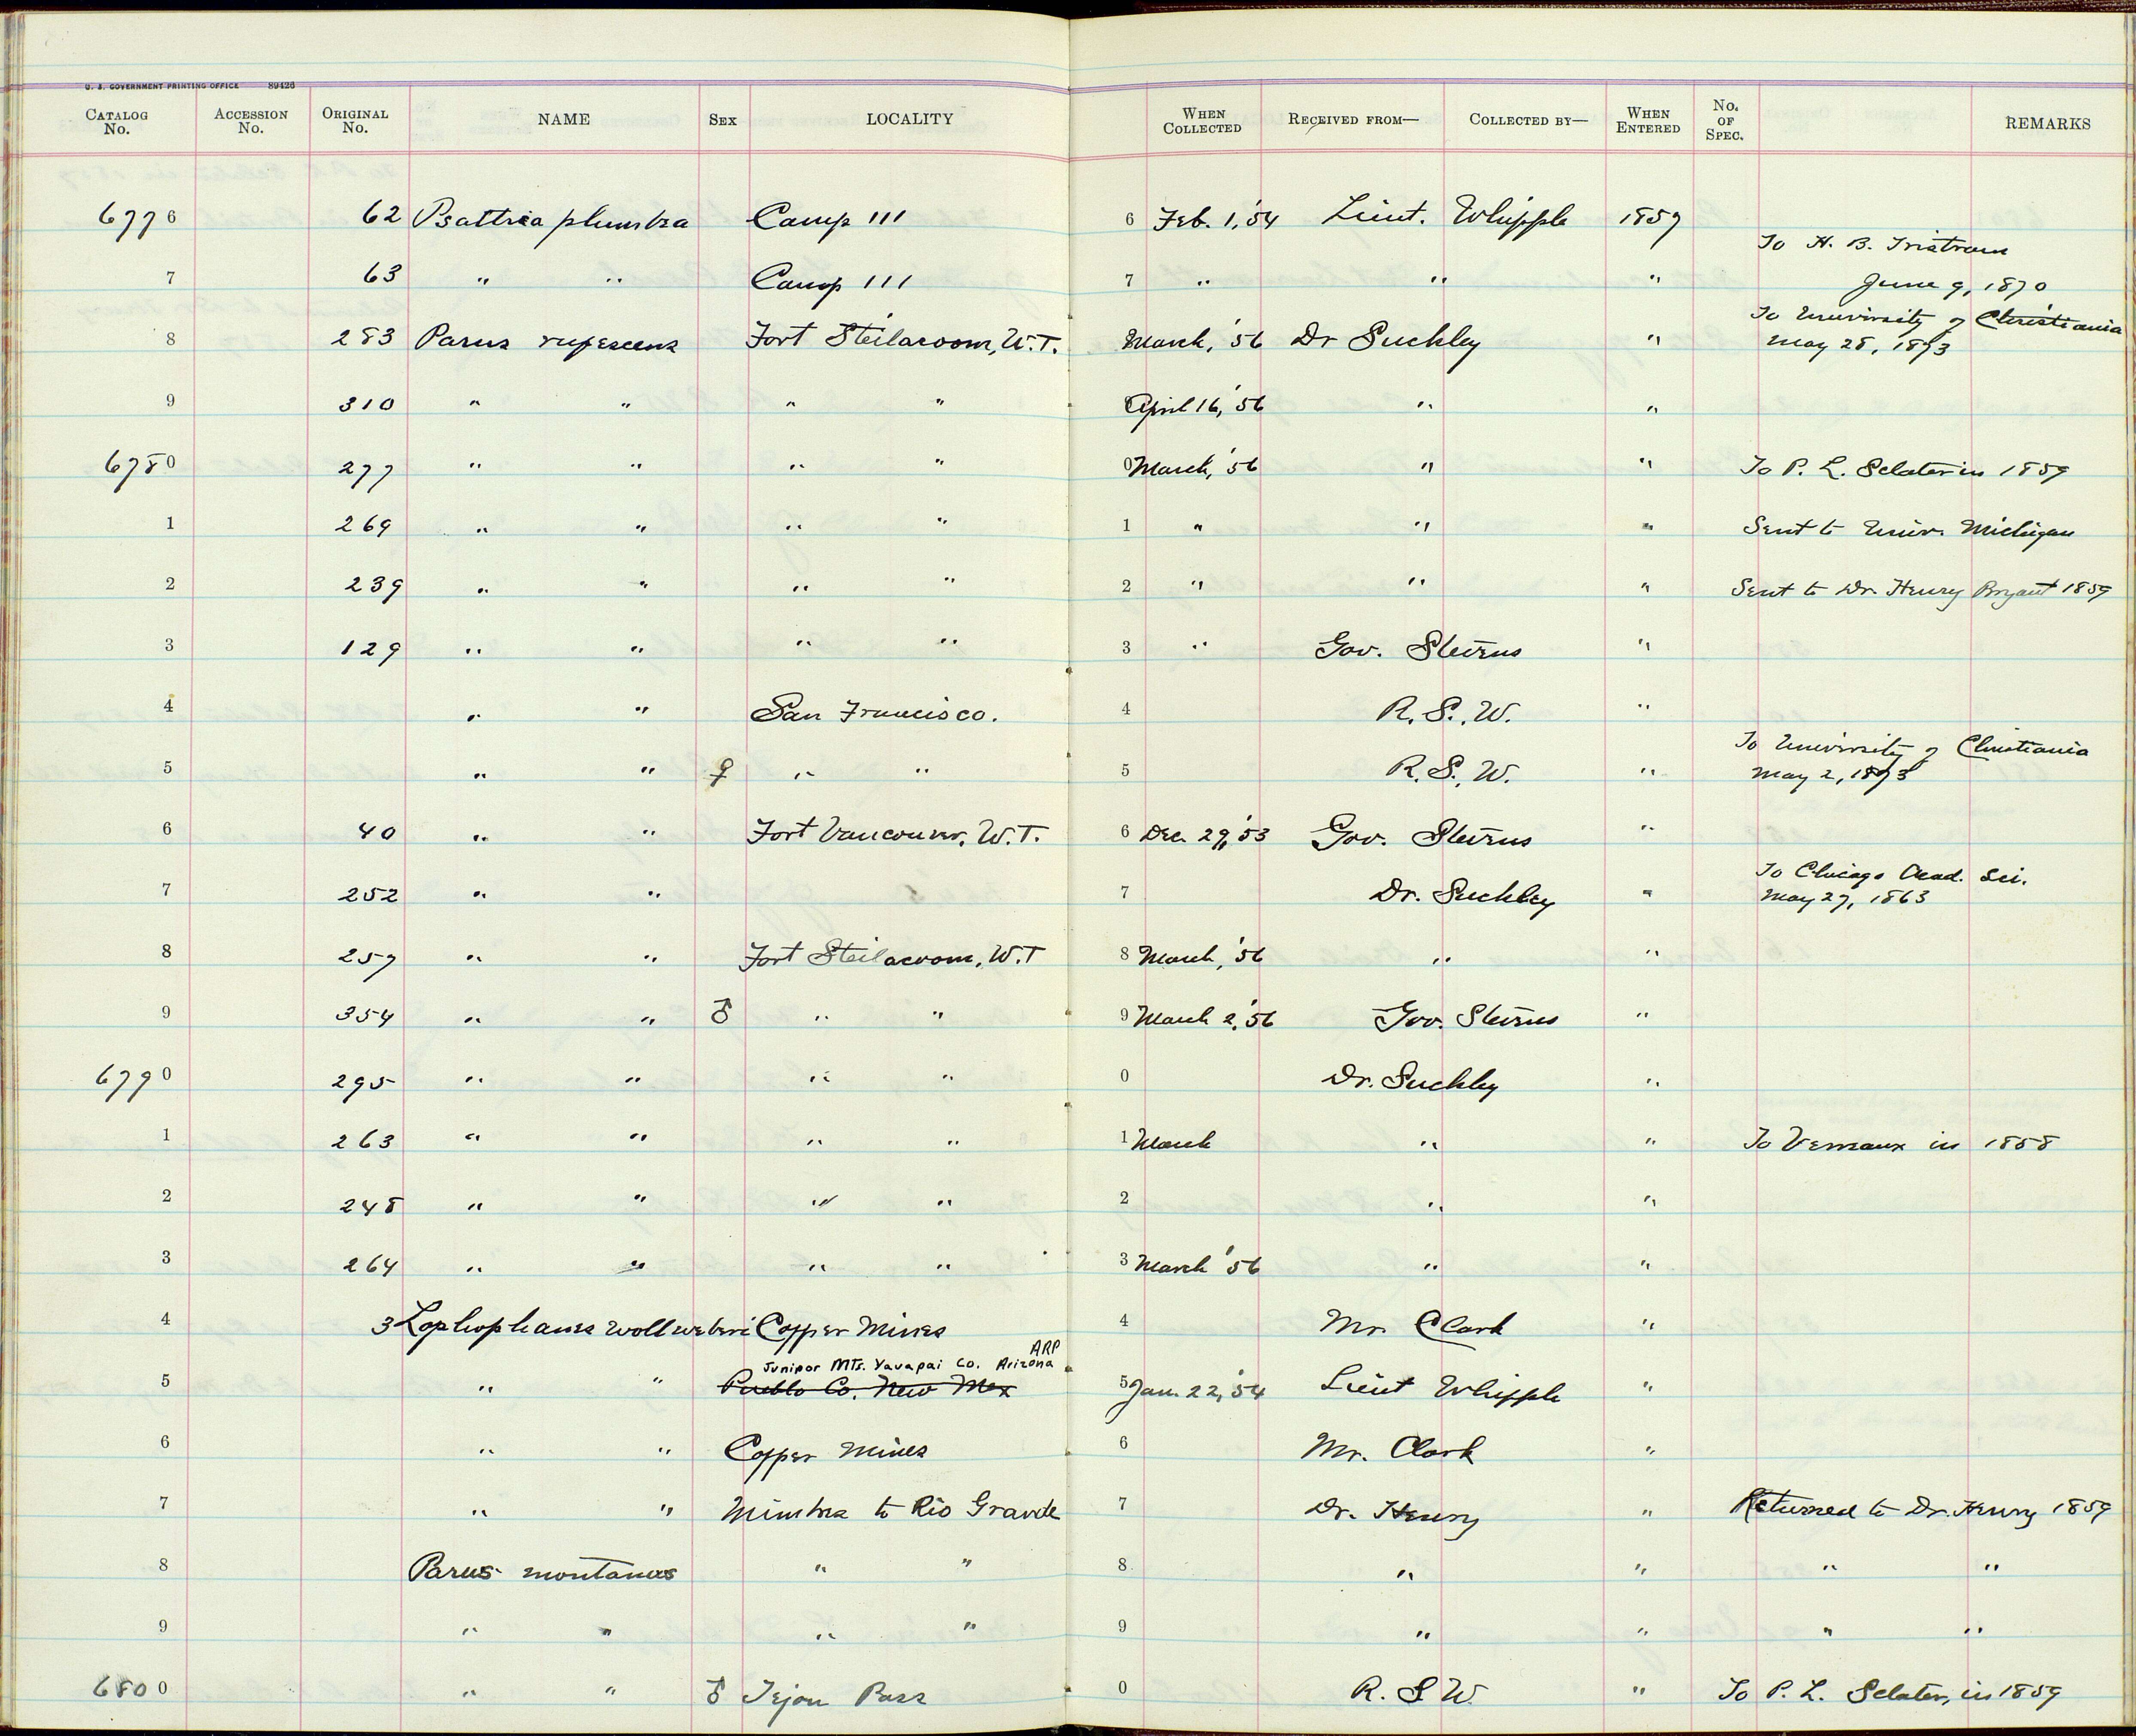 U. S. GOVERNMENT PRINTING OFFICE 89426
CATALOG No. ACCESSION No. ORIGINAL No. NAME SEX LOCALITY WHEN COLLECTED RECEIVED FROM— COLLECTED BY— WHEN ENTERED No. OF SPEC. REMARKS
6776 62 Psaltria plumbea Camp 111 6 Feb. 1, '54 Lieut. Whipple 1857
To H. B. Tristram
7 63 " " Camp 111 7 " " " June 9, 1870
To University of Christiania
8 283 Parus rufescens Fort Steilacoom, W.T. March, '56 Dr Suckley " May 28, 1873
9 310 " " " " April 16, '56 " "
6780 277 " " " " 0 March, '56 " " To P. L. Sclater in 1859
1 269 " " " " 1 " " " Sent to Univ. Michigan
2 239 " " " " 2 " " " Sent to Dr. Henry Bryant 1859
3 129 " " " " 3 " Gov. Stevens "
4 " " San Francisco. 4 R. S. W. "
To University of Christiania
5 " " ♀ " " 5 R. S. W. " May 2, 1873
6 40 " " Fort Vancouver, W.T. 6 Dec. 29, '53 Gov. Stevens "
To Chicago Acad. Sci.
7 252 " " 7 Dr. Suckley " May 27, 1863
8 257 " " Fort Steilacoom, W.T 8 March, '56 " "
9 354 " " ♂ " " 9 March 2, '56 Gov. Stevens "
6790 295 " " " " 0 Dr. Suckley "
1 263 " " " " 1 March " " To Verreaux in 1858
2 248 " " " " 2 " "
3 264 " " " " 3 March '56 " "
4 3 Lophophanes wollweberi Copper Mines 4 Mr. Clark "
ARP
Juniper Mts. Yavapai Co. Arizona
5 " " Pueblo Co. New Mex 5 Jan. 22, '54 Lieut Whipple "
6 " " Copper Mines 6 Mr. Clark "
7 " " Mimbres to Rio Grande 7 Dr. Henry " Returned to Dr. Henry 1859
8 Parus montanus " " 8 " " " "
9 " " " " 9 " " " "
6800 " " ♂ Tejon Pass 0 R. S W. " To P. L. Sclater, in 1859